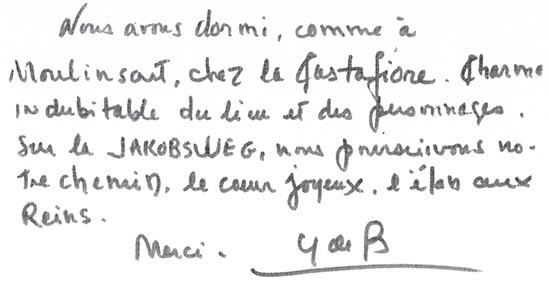 Nous avons dormi, comme à
Moulinsart, chez la Castafiore. Charme
indubitable du lieu et des personnages.
Sur la JAKOBSWEG, nous poursuivons no-
tre chemin, le cœur joyeux, l'élan aux
Reins.
Merci. Y de B